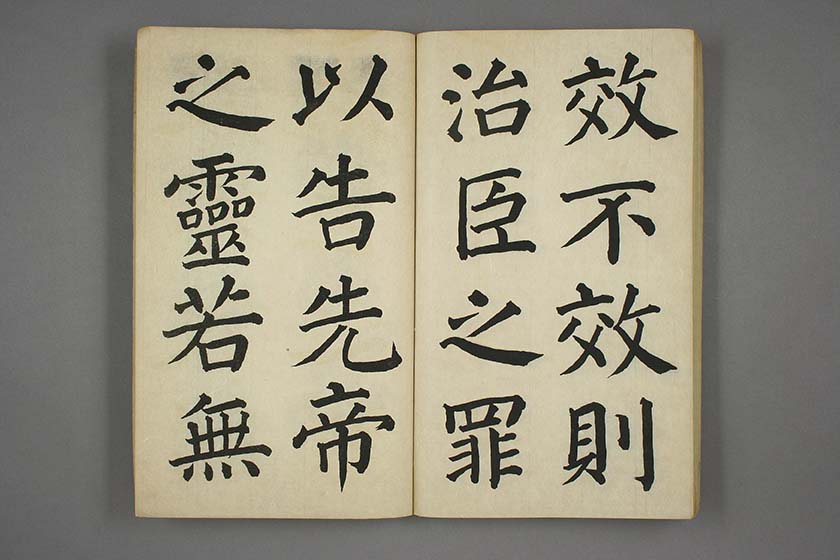 效不效則
治臣之罪
以告先帝
之靈若無